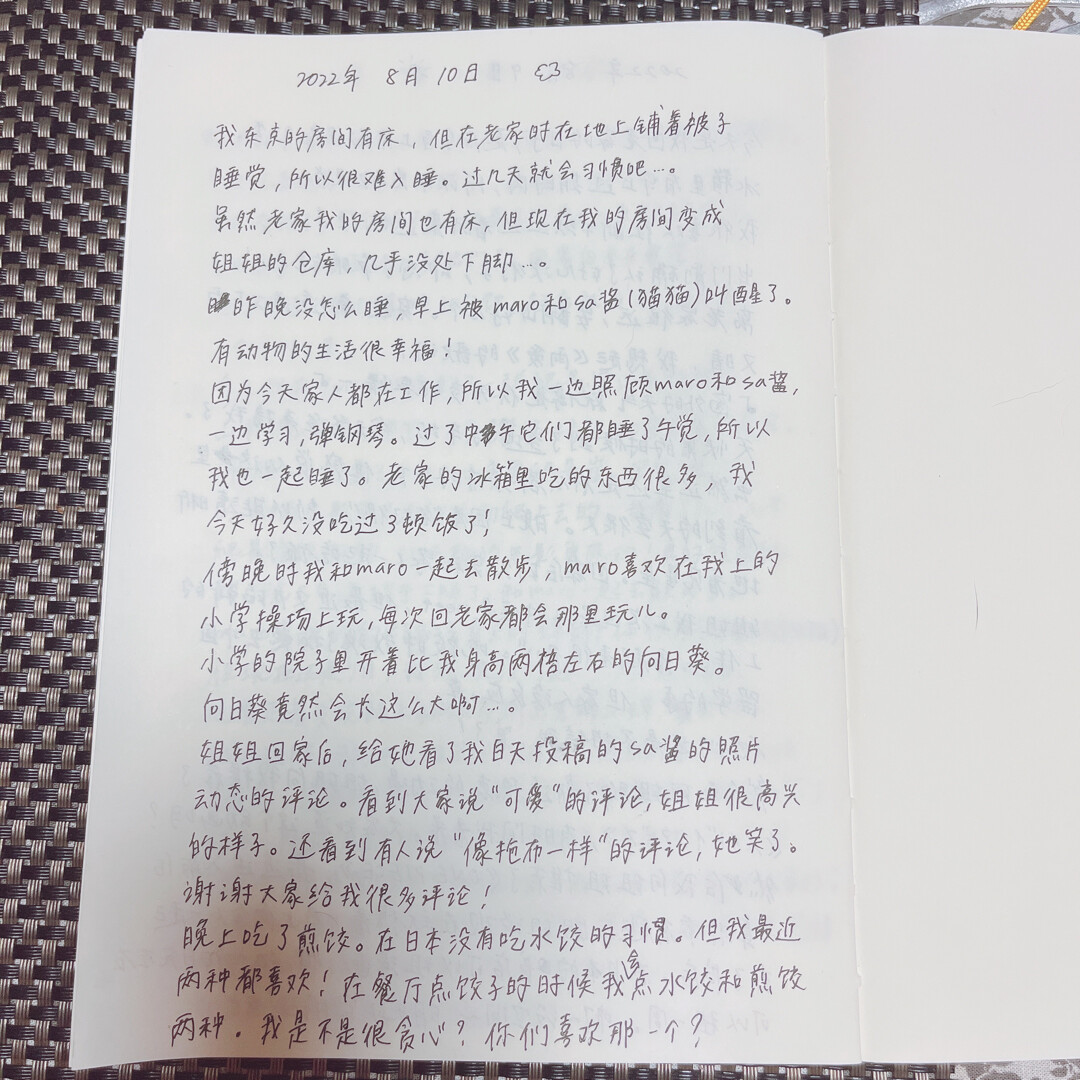 2022年 8月 10日
我东京的房间有床，但在老家时在地上铺着被子
睡觉，所以很难入睡。过几天就会习惯吧…。
虽然老家我的房间也有床，但现在我的房间变成
姐姐的仓库，几乎没处下脚…。
昨晚没怎么睡，早上被maro和sa酱(猫猫)叫醒了。
有动物的生活很幸福！
因为今天家人都在工作，所以我一边照顾maro和sa酱，
一边学习，弹钢琴。过了中午它们都睡了午觉，所以
我也一起睡了。老家的冰箱里吃的东西很多，我
今天好久没吃过了顿饭了！
傍晚时我和maro一起去散步，maro喜欢在我上的
小学操场上玩，每次回老家都会那里玩儿。
小学的院子里开着比我身高两倍左右的向日葵。
向日葵竟然会长这么大啊…。
姐姐回家后，给她看了我白天投稿的sa酱的照片
动态的评论。看到大家说“可爱“的评论，姐姐很高兴
的样子。还看到有人说“像拖布一样“的评论，她笑了。
谢谢大家给我很多评论！
晚上吃了煎饺。在日本没有吃水饺的习惯。但我最近
两种都喜欢！在餐厅点饺子的时候我会点水饺和煎饺
两种。我是不是很贪心？你们喜欢那一个？